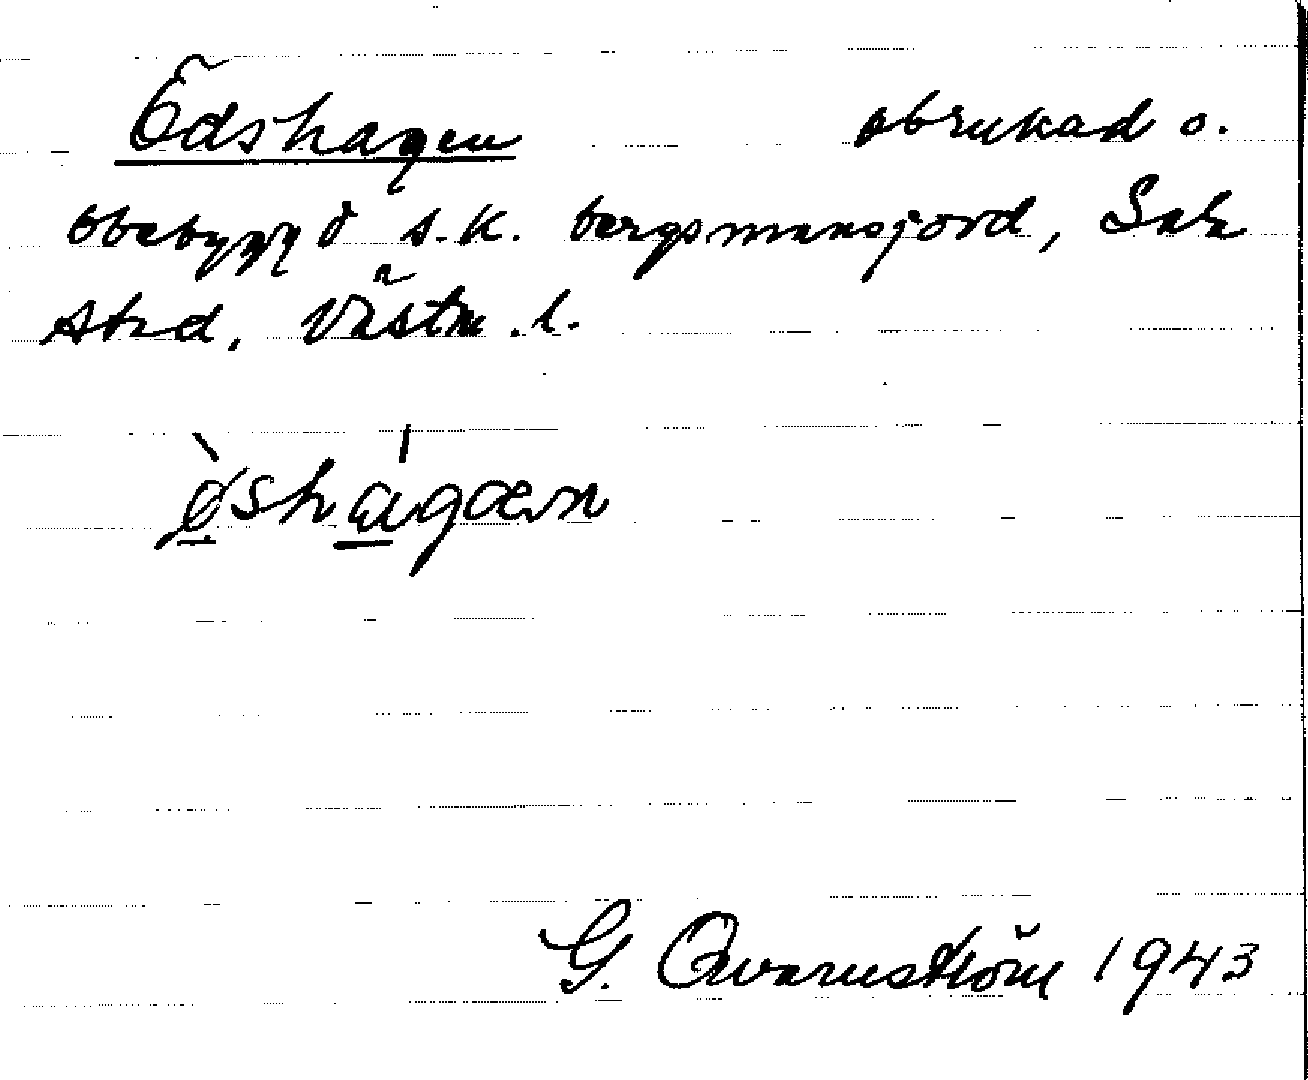 Ödshagen obrukad o.
obebyggd s.k. bergsmansjord, Sala
stad, Västm. l.
G. Qvarnström 1943